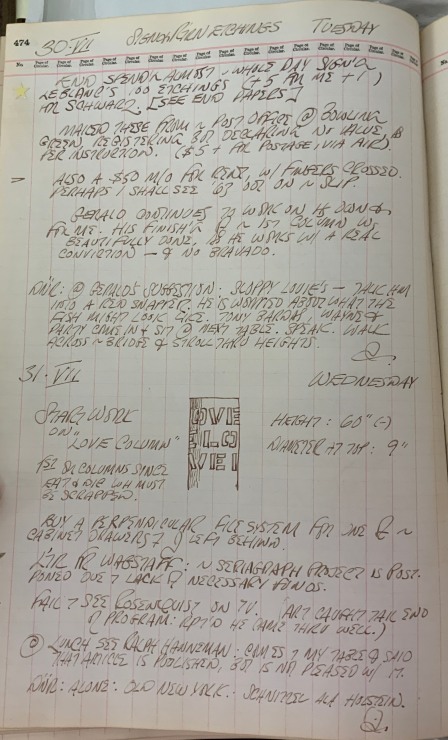 474
30·VII SIGN&RUN ETCHINGS TUESDAY
No. Page of Circular. Page of Circular. Page of Circular. Page of Circular. Page of Circular. Page of Circular. Page of Circular. Page of Circular. No.
END SPEND'N ALMOST WHOLE DAY SIGN'G
LEBLANC'S 100 ETCHINGS (+5 FOR ME +1
FOR SCHWARZ. [SEE END PAPERS]
MAILED THESE FROM ~ POST OFFICE @ BOWLING
GREEN, REGISTERING BUT DECLARING NO VALUE, AS
PER INSTRUCTION. ($5+ FOR POSTAGE, VIA AIR).
ALSO A $50 M/O FOR RENT, W/ FINGERS CROSSED.
PERHAPS I SHALL SEE '63 OUT ON ~ SLIP.
GERALD CONTINUES TO WORK ON
FOR ME. HIS FINISH'G OF ~ 1ST COLUMN WS
BEAUTIFULLY DONE, AS HE WORKS W/ A REAL
CONVICTION — & NO BRAVADO.
DIN'R: @ GERALD'S SUGGESTION: SLOPPY LOUIE'S — TALK HIM
INTO A RED SNAPPER. HE IS WORRIED ABOUT WHAT THE
FISH MIGHT LOOK LIKE. TONY WAYNE &
PARTY COME IN & SIT @ NEXT TABLE. SPEAK. WALK
ACROSS ~ BRIDGE & STROLL THRU HEIGHTS.
31·VII WEDNESDAY
START WORK
ON
"LOVE COLUMN"
OVE
ELO
VEI
HEIGHT: 60" (-)
DIAMETER AT TOP: 9"
1ST OF COLUMNS SINCE
EAT & DIE WH MUST
BE SCRAPPED.
BUY A PERPENDICULAR FILE SYSTEM FOR ONE OF ~
CABINET DRAWERS LEFT BEHIND.
LT'R FR WAGSTAFF: ~ SERIAGRAPH PROJECT IS POST-
PONED DUE T LACK OF NECESSARY FUNDS.
FAIL T SEE ROSENQUIST ON TV. (ART CAUGHT TAIL END
OF PROGRAM: RPT'D HE CAME THRU WELL.)
@ LUNCH SEE RALPH HANNEMAN: COMES T MY TABLE & SAID
THAT ARTICLE IS PUBLISHED, BUT IS NOT PLEASED W/ IT.
DIN'R: ALONE: OLD NEW YORK. SCHNITZEL ALA HOLSTEIN.